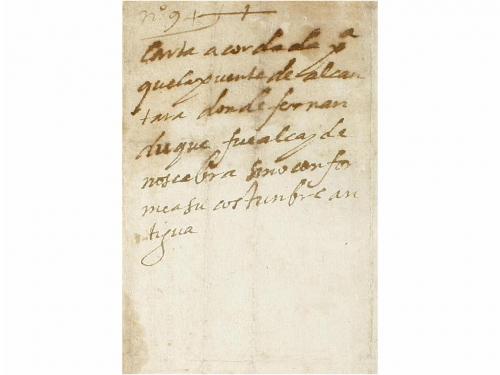 nº 94
Carta acordada pª
que la puente de alcan
tara donde fernan
duque fue alcayde
no se abra sino confor
me a su costunbre an
tigua